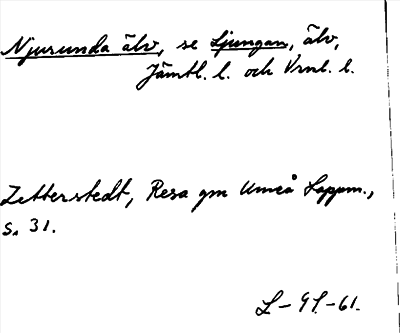 Njurunda älv, se Ljungan, älv,
Jämtl. l. och Vrnl. l.
Zetterstedt, Resa gm Umeå Lappm.,
s. 31.
L-91.-61.